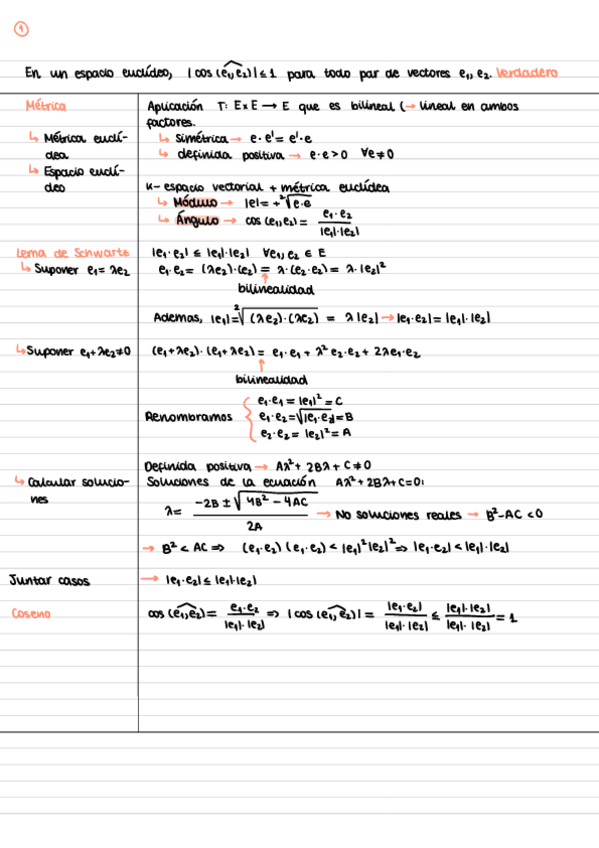 1
En un espacio euclídeo, |cos(e₁,e₂)| ≤ 1 para todo par de vectores e₁, e₂. Verdadero
Métrica
Aplicación T: E×E → E que es bilineal (→ lineal en ambos
factores.
↳ Métrica euclí-
dea
↳ Simétrica → e·e' = e'·e
↳ definida positiva → e·e > 0 ∀e≠0
↳ Espacio euclí-
deo
K-espacio vectorial + métrica euclídea
↳ Módulo → |e| = +²√e·e
↳ Ángulo → cos(e₁,e₂) = e₁·e₂ / |e₁|·|e₂|
Lema de Schwartz
|e₁·e₂| ≤ |e₁|·|e₂| ∀e₁,e₂ ∈ E
↳ Suponer e₁ = λe₂
e₁·e₂ = (λe₂)·(e₂) = λ·(e₂·e₂) = λ·|e₂|²
bilinealidad
Ademas, |e₁| = ²√(λe₂)·(λe₂) = λ|e₂| → |e₁·e₂| = |e₁|·|e₂|
↳ Suponer e₁+λe₂≠0
(e₁+λe₂)·(e₁+λe₂) = e₁·e₁ + λ²e₂·e₂ + 2λe₁·e₂
bilinealidad
Renombramos
e₁·e₁ = |e₁|² = C
e₁·e₂ = √|e₁·e₂| = B
e₂·e₂ = |e₂|² = A
Definida positiva → Aλ² + 2Bλ + C ≠ 0
↳ Calcular solucio-
nes
Soluciones de la ecuación Aλ²+2Bλ+C=0:
λ = −2B ± √4B² − 4AC / 2A → No soluciones reales → B²−AC < 0
→ B² < AC ⇒ (e₁·e₂)(e₁·e₂) < |e₁|²|e₂|² ⇒ |e₁·e₂| < |e₁|·|e₂|
Juntar casos → |e₁·e₂| ≤ |e₁|·|e₂|
Coseno
cos(e₁,e₂) = e₁·e₂ / |e₁|·|e₂| ⇒ |cos(e₁,e₂)| = |e₁·e₂| / |e₁|·|e₂| ≤ |e₁|·|e₂| / |e₁|·|e₂| = 1